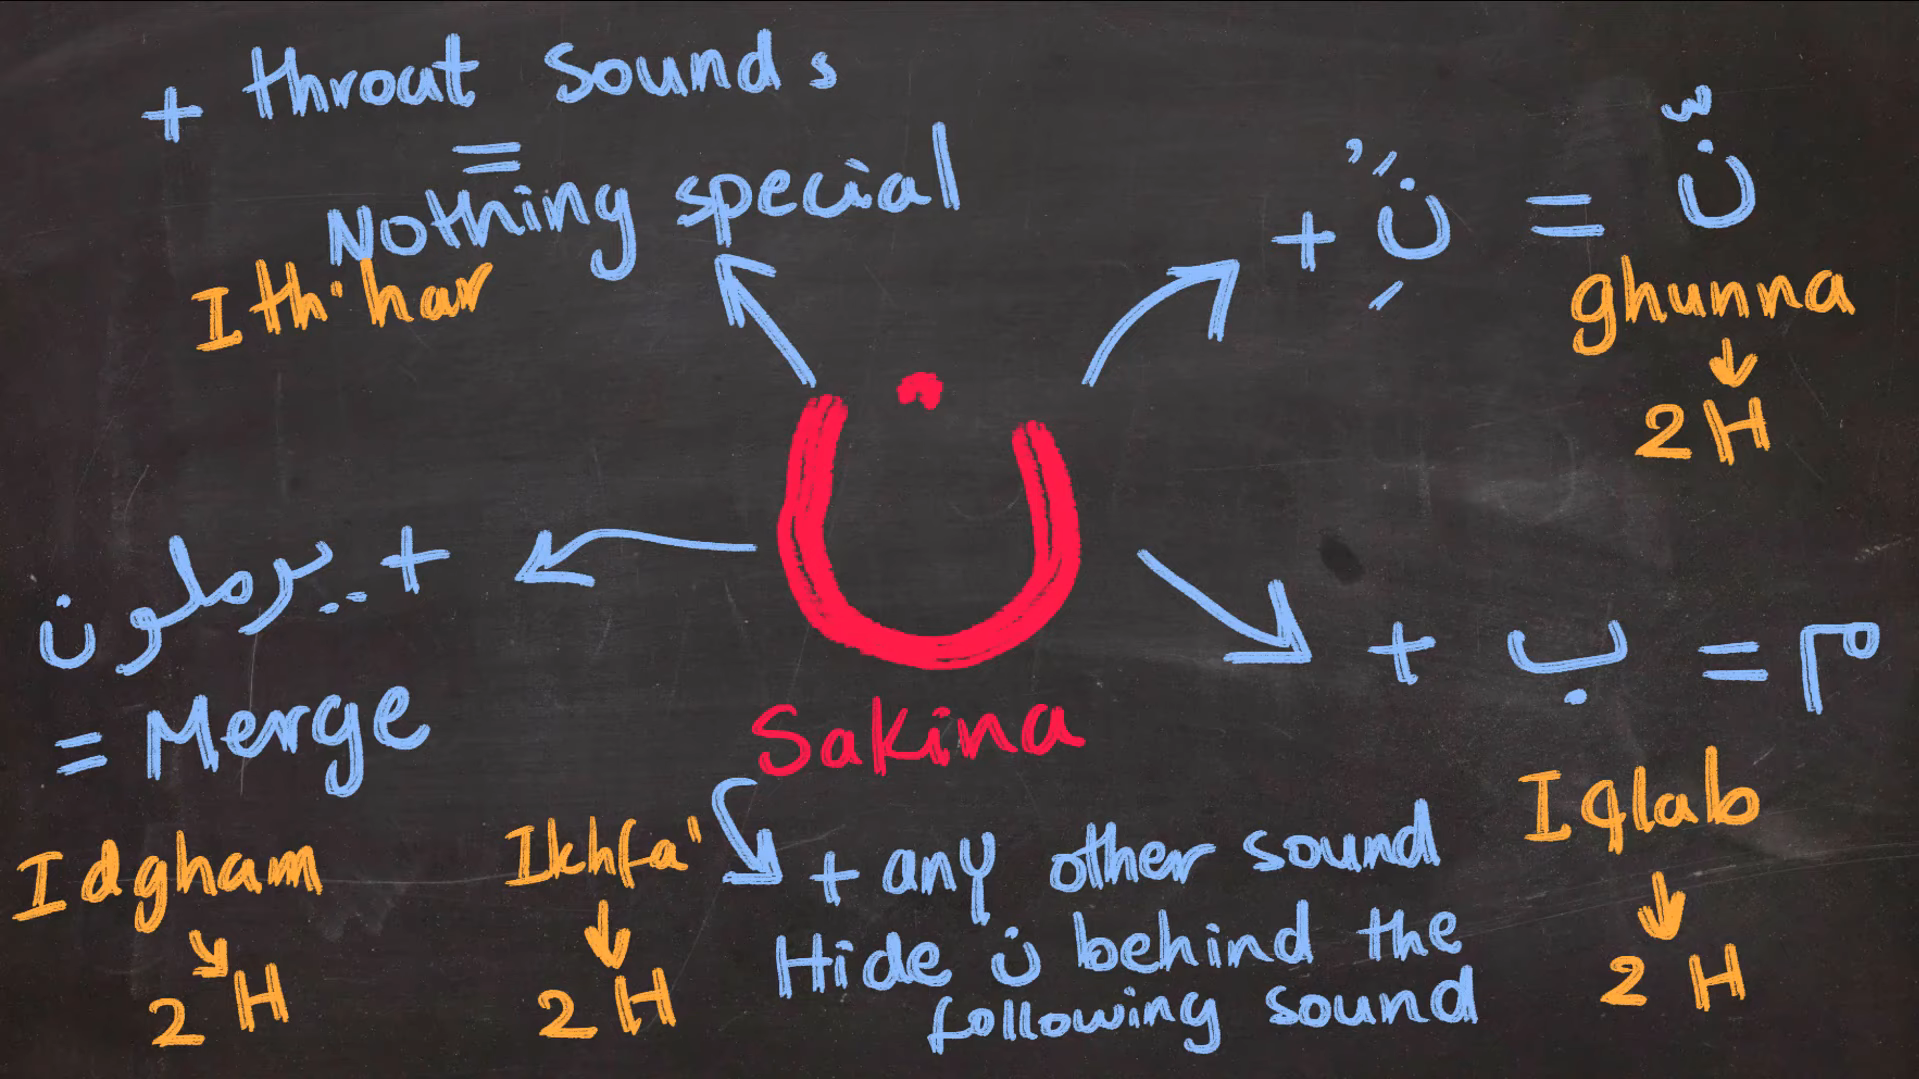 + throat sounds
=
Nothing special
Ith'har
+ نَُِ = نّ
ghunna
2 H
ن
Sakina
+ يرملون
= Merge
Idgham
2 H
+ ب = م
Iqlab
2 H
Ikhfa'
2 H
+ any other sound
Hide ن behind the
following sound